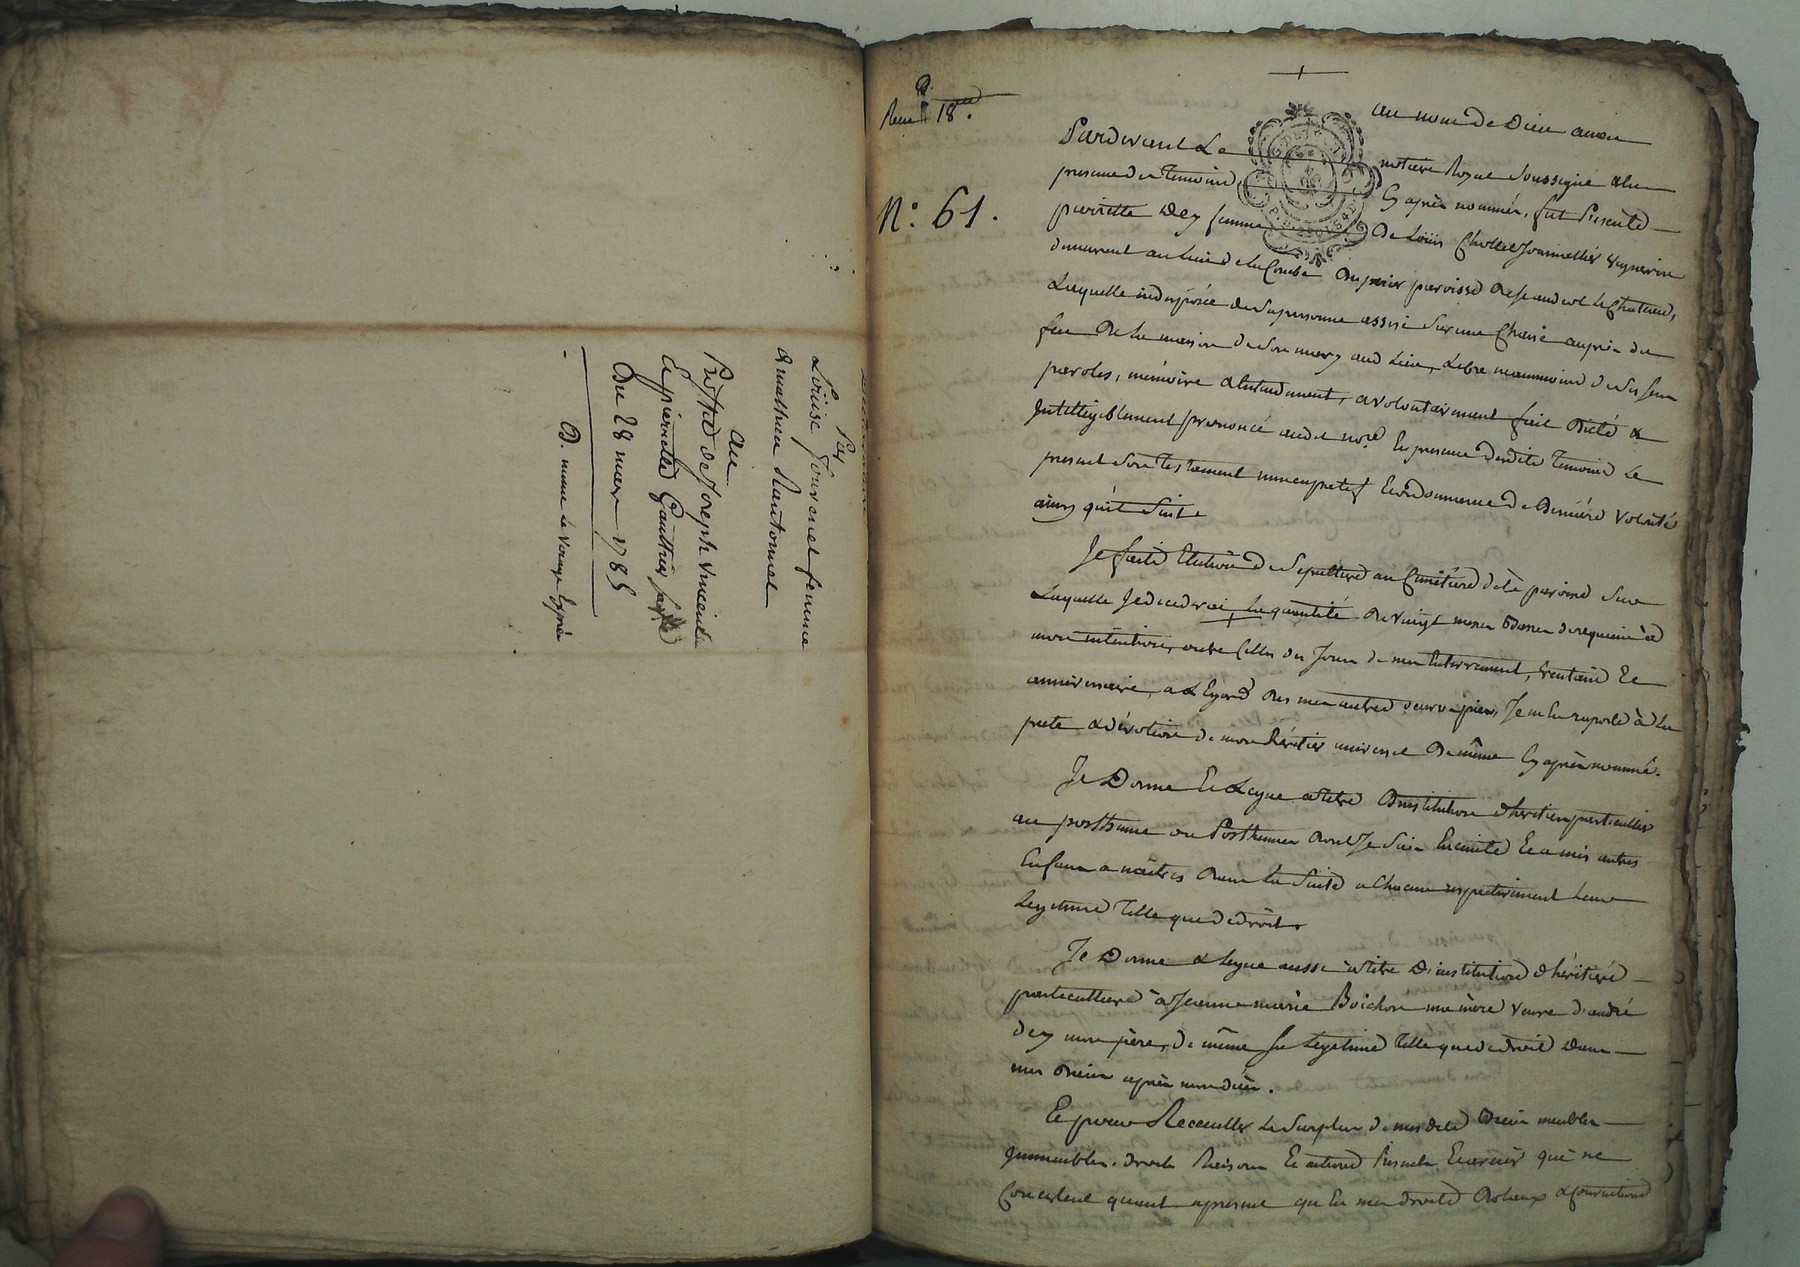 Par
Louise Fournel femme
de mathieu Nantonnet
au
Proffit de Joseph Vincent
et pierrette Gauthier
Du 28 mars 1785
N.° 61.
au nom de Dieu amen
Pardevant Le notaire Royal soussigné et en
presence des temoins Cy après nommés, fut Presente
pierrette Dey femme De Loüis Chollet Jouinellier vigneron
demeurant au lieu de la Combe paroisse De st andeol le Chateau,
Laquelle indisposée de sa personne assise sur une Chaise auprès du
feu De la maison de son mary aud Lieu, Libre néanmoins de ses sens
paroles, mémoire et entendement, a volontairement fait Dicté &
Intelligiblement prononcé aud no.re En presence desdits temoins Le
present son testament nuncupatif Et ordonnance de Derniere volonté
ainsy qu'il suit
Je fais Election de sepulture au Cimetiere de la paroisse sur
Laquelle Je decederai, la quantité De vingt messes basses de requiem à
mon intention, outre Celles du Jour de mon Enterrement, trentaine Et
anniversaire, a L'Egard Des mes autres oeuvres pies, Je m'en raporte à la
pieté & dévotion de mon Héritier universel De même Cy après nommé.
Je Donne Et Legue a titre D'institution d'heritiers particuliers
au posthume ou Posthumes dont Je suis Enceinte Et a mes autres
Enfans a naitres Dans la suite a Chacun respectivement leur
Legitime telle que de droit.
Je Donne & Legue aussi à titre D'institution d'héritiere
particulliere à Jeanne marie Boichon ma mère veuve d'andré
dey mon père, de même sa Legitime telle que de droit Dans
mes Biens après mon décès.
Et pour Recueillir Le surplus de mesdits Biens meubles
Immeubles, droits Raisons Et actions Presents Et avenir qui ne
Consistent quant apresent qu'En mes droits